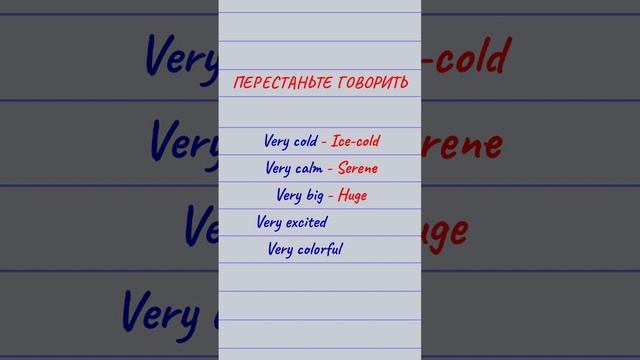 ПЕРЕСТАНЬТЕ ГОВОРИТЬ
Very cold - Ice-cold
Very calm - Serene
Very big - Huge
Very excited
Very colorful